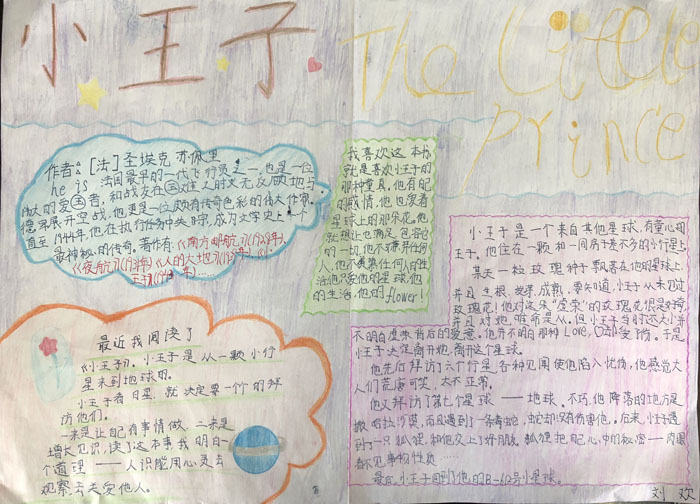 小王子
The Little
Prince
作者:[法]圣埃克苏佩里
he is 法国最早的一代飞行员之一,也是一位
伟大的爱国者,和战友在国难之时义无反顾地与
德军展开空战,他更是一位颇有传奇色彩的伟大作家。
直至1944年,他在执行任务中失踪,成为文学史上一个
最神秘的传奇。著作有:《南方邮航》(1928年)、
《夜航》《人的大地》
王子》
我喜欢这本书
就是喜欢小王子的
那种童真,他有自己
的感情,他也爱着
星球上的那朵花,他
就想让她满足,包容它
的一切,他不
人,他
生活只爱他的星球,他
的生活,他的flower!
小王子是一个来自其他星球,有童心的
王子,他住在一颗和一间房子差不多的小行星上
某天一粒玫瑰种子飘落在他的星球上,
并且生根、发芽、成熟,要知道,小王子从未见过
玫瑰花!他对这朵"虚荣"的玫瑰花很是好奇
并且对她唯命是从,但小王子当时年纪太小并
不明白虚荣背后的爱意。他并不明白那种Love,因为爱情。于是
小王子决定离开她,离开这个星球。
他先后拜访了六个行星,各种见闻使他陷入忧伤,他感觉大
人们荒唐可笑、太不正常。
他又拜访了第七个星球——地球,不巧,他降落的地方是
撒哈拉沙漠,而且遇到了一条毒蛇,蛇却没有伤害他。后来,小王子遇
到了一只狐狸,和他交上了好朋友,狐狸把自己心中的秘密——肉眼
看不见事物性质……
最后,小王子回到了他的B-612号小星球。
刘欢
最近我阅读了
《小王子》。小王子是从一颗小行
星来到地球的。
小王子有日星,就决定要一个个的拜
访他们。
一来是让自己有事情做,二来是
增长见识,读了这本书我明白一
个道理——人只能用心灵去
观察去去爱他人。